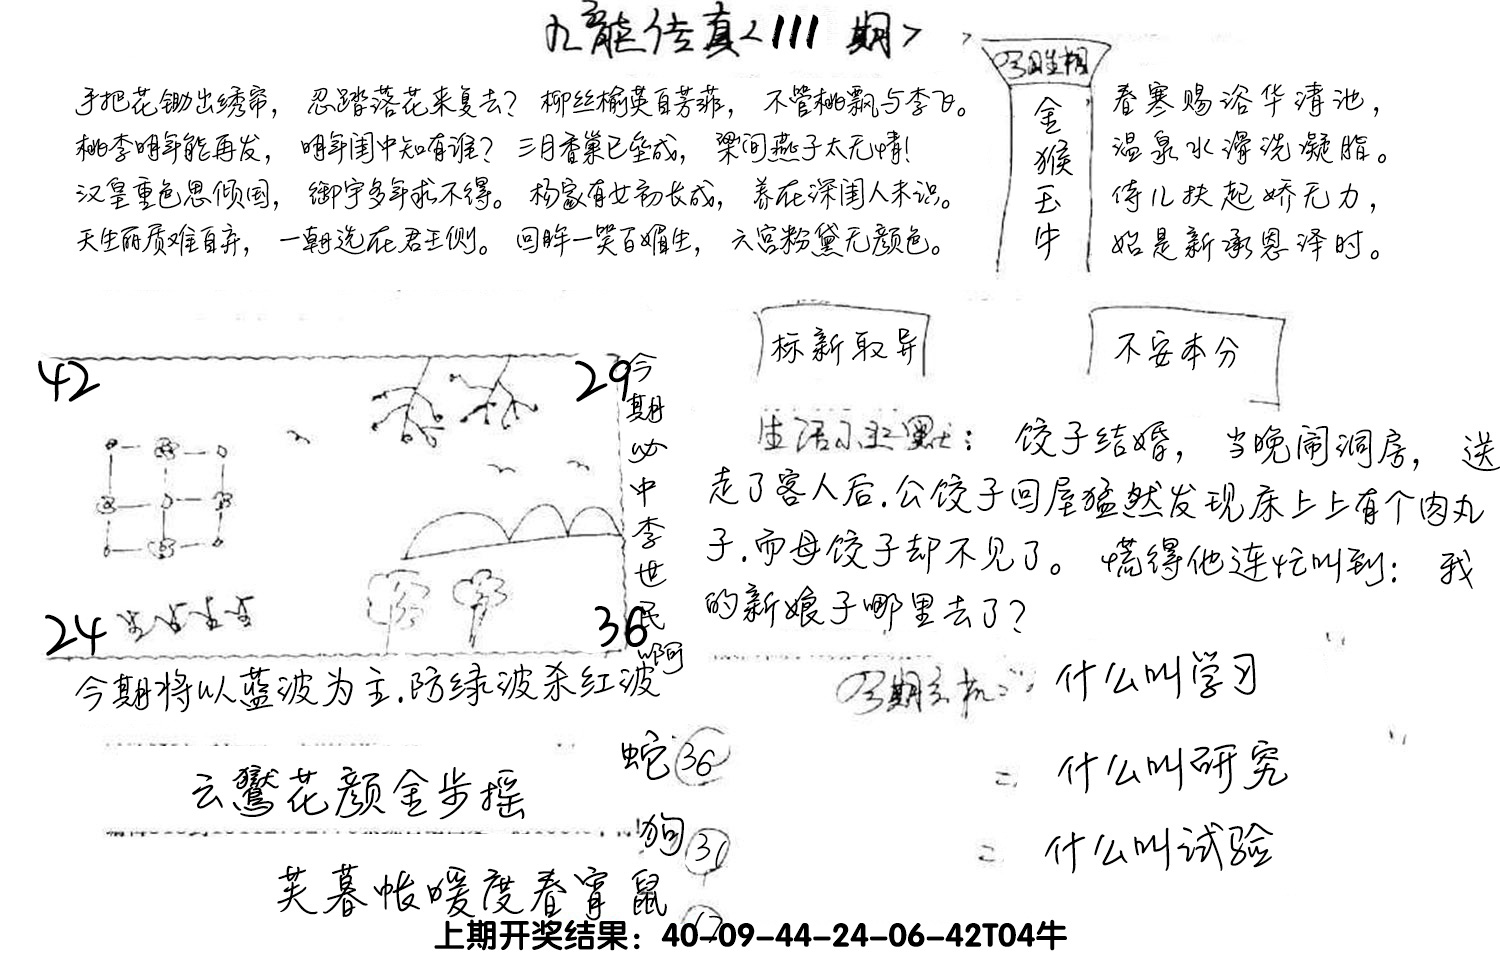 九龍传真<111 期>
手把花锄出绣帘，忍踏落花来复去？柳丝榆荚自芳菲，不管桃飘与李飞。
桃李明年能再发，明年闺中知有谁？三月香巢已垒成，梁间燕子太无情！
汉皇重色思倾国，御宇多年求不得。杨家有女初长成，养在深闺人未识。
天生丽质难自弃，一朝选在君王侧。回眸一笑百媚生，六宫粉黛无颜色。
今日生相
金猴玉牛
春寒赐浴华清池，
温泉水滑洗凝脂。
侍儿扶起娇无力，
始是新承恩泽时。
标新取异
不安本分
42
29
24
36
今期必中李世民啊
生活小幽默：饺子结婚，当晚闹洞房，送
走了客人后.公饺子回屋猛然发现床上上有个肉丸
子.而母饺子却不见了。慌得他连忙叫到：我
的新娘子哪里去了？
今期将以蓝波为主.防绿波杀红波
今期玄机：什么叫学习
= 什么叫研究
= 什么叫试验
云鸞花颜金步摇
芙暮帐暖度春宵
蛇 36
狗 31
鼠
上期开奖结果：40-09-44-24-06-42T04牛